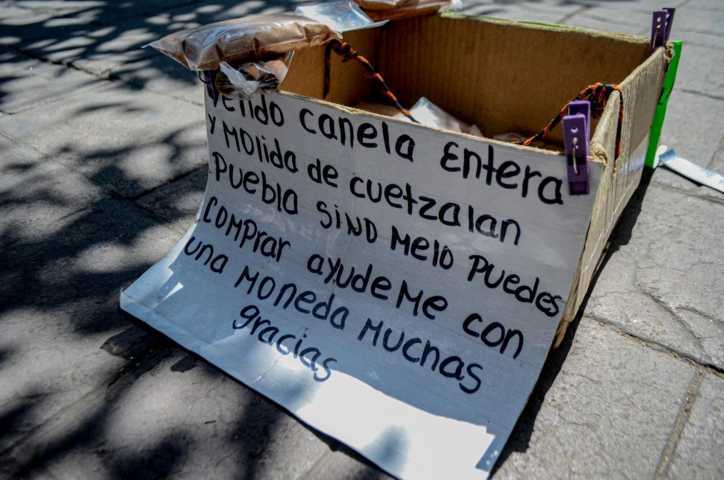 Vendo canela Entera
y Molida de cuetzalan
Puebla sino Melo Puedes
comprar ayudeMe con
una Moneda Muchas
gracias